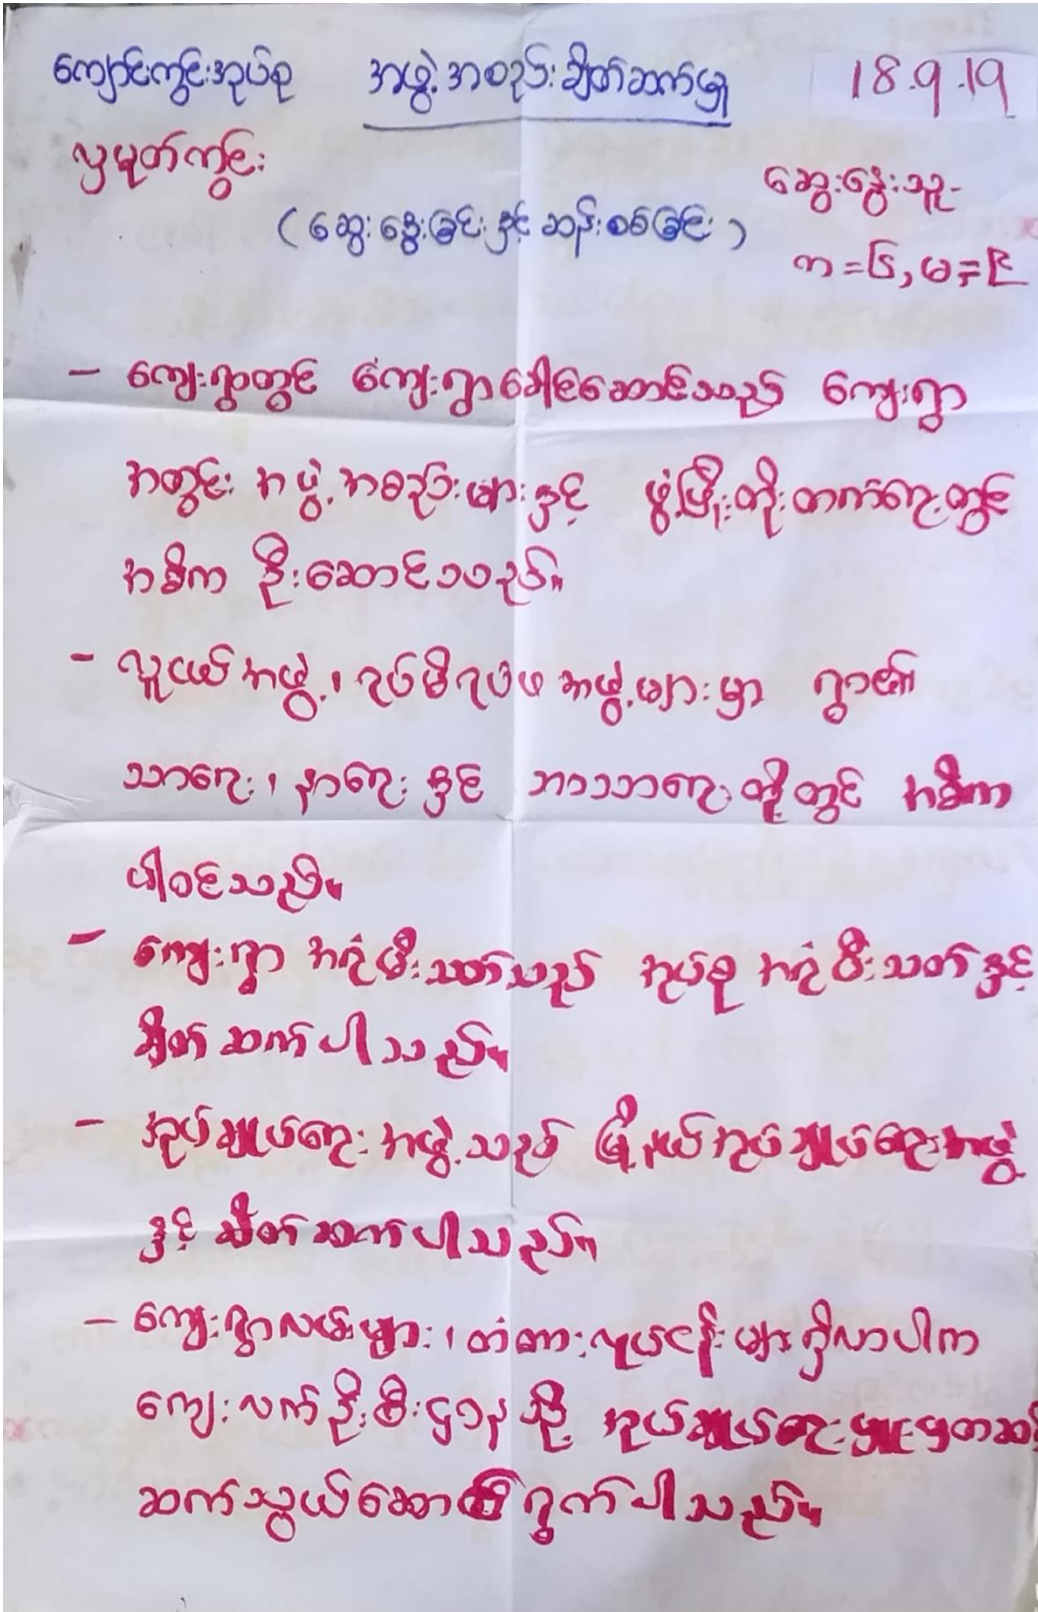 ကျောင်းကွင်းအုပ်စု အဖွဲ့အစည်းချိတ်ဆက်မှု 18.9.19
လှမုတ်ကွင်း ဆွေးနွေးသူ-
(ဆွေးနွေးခြင်းနှင့်ဆန်းစစ်ခြင်း) က=၆, မ=
- ကျေးရွာတွင် ကျေးရွာခေါင်ဆောင်သည် ကျေးရွာ
အတွင်း အဖွဲ့အစည်းများနှင့် ဖွံ့ဖြိုးတိုးတက်ရေးတွင်
အဓိက ဦးဆောင်သည်။
- လူငယ်အဖွဲ့၊ ရပ်မိရပ်ဖအဖွဲ့များမှာ ရွာ၏
သာရေး၊ နာရေးနှင့် ဘာသာရေးတို့တွင် အဓိက
ပါဝင်သည်။
- ကျေးရွာ အရံမီးသတ်သည် အုပ်စု အရံမီးသတ်နှင့်
ချိတ်ဆက်ပါသည်။
- အုပ်ချုပ်ရေးအဖွဲ့သည် မြို့နယ်အုပ်ချုပ်ရေးအဖွဲ့
နှင့် ချိတ်ဆက်ပါသည်။
- ကျေးရွာလမ်းများ၊ တံတားလုပ်ငန်းများရှိလာပါက
ကျေးလက်ဦးစီးဌာနသို့ အုပ်ချုပ်ရေးမှူးမှတဆင့်
ဆက်သွယ်ဆောင်ရွက်ပါသည်။